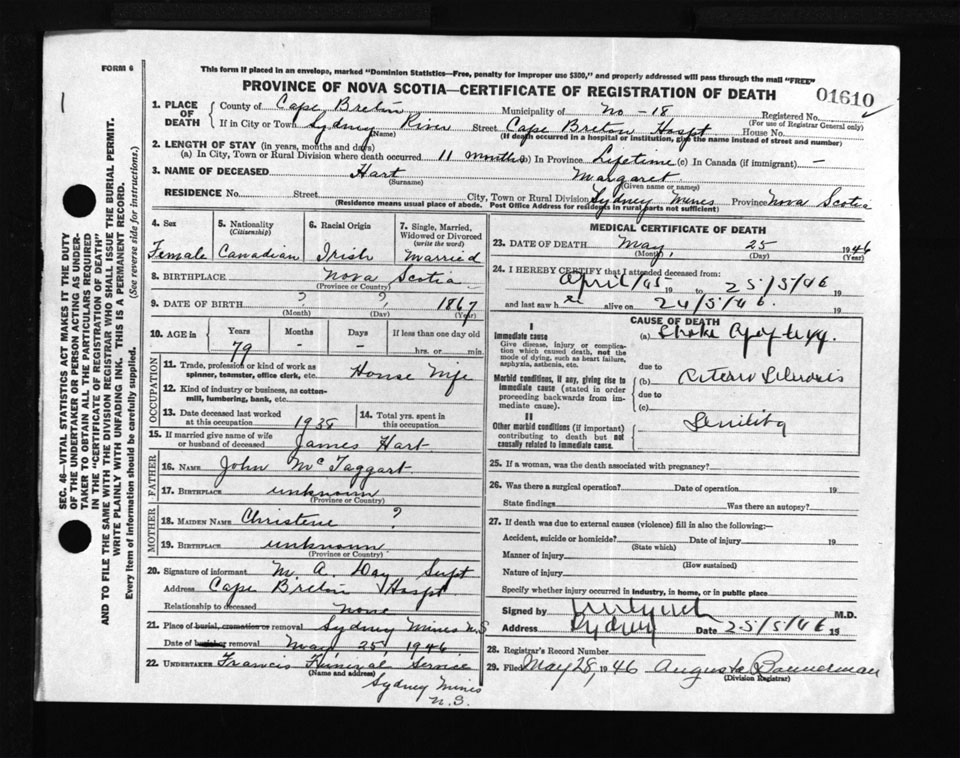 FORM 6
This form if placed in an envelope, marked "Dominion Statistics—Free, penalty for improper use $300," and properly addressed will pass through the mail "FREE"
PROVINCE OF NOVA SCOTIA—CERTIFICATE OF REGISTRATION OF DEATH
01610
1. PLACE OF DEATH
County of Cape Breton Municipality of No - 18 Registered No.
(For use of Registrar General only)
If in City or Town Sydney River Street Cape Breton Hospt House No.
(Name) (If death occurred in a hospital or institution, give the name instead of street and number)
2. LENGTH OF STAY (in years, months and days)
(a) In City, Town or Rural Division where death occurred 11 months (b) In Province Lifetime (c) In Canada (if immigrant) -
3. NAME OF DECEASED Hart Margaret
(Surname) (Given name or names)
RESIDENCE No. Street City, Town or Rural Division Sydney Mines Province Nova Scotia
(Residence means usual place of abode. Post Office Address for residents in rural parts not sufficient)
4. Sex
Female
5. Nationality (Citizenship)
Canadian
6. Racial Origin
Irish
7. Single, Married, Widowed or Divorced (write the word)
Married
8. BIRTHPLACE Nova Scotia
(Province or Country)
9. DATE OF BIRTH ? ? 1867
(Month) (Day) (Year)
10. AGE in Years Months Days If less than one day old
79 - - hrs. or min.
OCCUPATION
11. Trade, profession or kind of work as spinner, teamster, office clerk, etc. House Wife
12. Kind of industry or business, as cotton-mill, lumbering, bank, etc.
13. Date deceased last worked at this occupation 1938
14. Total yrs. spent in this occupation
15. If married give name of wife or husband of deceased James Hart
FATHER
16. NAME John McTaggart
17. BIRTHPLACE unknown
(Province or Country)
MOTHER
18. MAIDEN NAME Christene ?
19. BIRTHPLACE unknown
(Province or Country)
20. Signature of informant M. A. Day Supt
Address Cape Breton Hospt
Relationship to deceased None
21. Place of burial, cremation or removal Sydney Mines N.S
Date of burial or removal May 25, 1946
22. UNDERTAKER Francis Funeral Service
(Name and address)
Sydney Mines
N.S.
MEDICAL CERTIFICATE OF DEATH
23. DATE OF DEATH May 25 1946
(Month) (Day) (Year)
24. I HEREBY CERTIFY that I attended deceased from:
April/45 19 to 25/5/46 19
and last saw her alive on 24/5/46. 19
CAUSE OF DEATH
I
Immediate cause
Give disease, injury or complication which caused death, not the mode of dying, such as heart failure, asphyxia, asthenia, etc.
(a) Stroke Apoplexy.
due to
Morbid conditions, if any, giving rise to immediate cause (stated in order proceeding backwards from immediate cause).
(b) Arterio Sclerosis
due to
(c)
II
Other morbid conditions (if important) contributing to death but not causally related to immediate cause.
Senility
25. If a woman, was the death associated with pregnancy?
26. Was there a surgical operation? Date of operation 19
State findings Was there an autopsy?
27. If death was due to external causes (violence) fill in also the following:—
Accident, suicide or homicide? Date of injury 19
(State which)
Manner of injury
(How sustained)
Nature of injury
Specify whether injury occurred in industry, in home, or in public place
Signed by M.D.
Address Sydney Date 25/5/46 19
28. Registrar's Record Number
29. Filed May 28, 1946 Augusta Bannerman
(Division Registrar)
SEC. 46—VITAL STATISTICS ACT MAKES IT THE DUTY
OF THE UNDERTAKER OR PERSON ACTING AS UNDER-
TAKER TO OBTAIN ALL THE PARTICULARS REQUIRED
IN THE "CERTIFICATE OF REGISTRATION OF DEATH"
AND TO FILE THE SAME WITH THE DIVISION REGISTRAR WHO SHALL ISSUE THE BURIAL PERMIT.
WRITE PLAINLY WITH UNFADING INK. THIS IS A PERMANENT RECORD.
Every item of information should be carefully supplied. (See reverse side for instructions.)